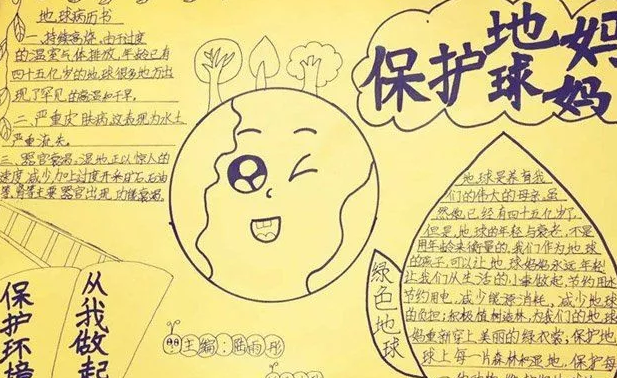 地球病历书
一、持续高烧，由于过度
的温室气体排放，年龄已有
四十五亿岁的地球很多地方出
现了罕见的高温和干旱。
二、严重皮肤病，这表现为水土
严重流失。
三、器官衰竭，湿地正以惊人的
速度减少，加上过度开采矿石、石油
等，肾等主要器官出现功能衰竭。
保护地球妈妈
地球是养育我
们的伟大的母亲，虽
然她已经有四十五亿岁了，
但是，地球的年轻与衰老，不是
用年龄来衡量的，我们作为地球
的孩子，可以让地球妈妈永远年轻！
让我们从生活的小事做起，节约用水
节约用电，减少能源消耗，减少地球
的负担；积极植树造林，为我们的地球
妈妈重新穿上美丽的绿衣裳；保护地
球上每一片森林和湿地，保护每
绿色地球
从我做起
保护环境
主编：陆雨彤